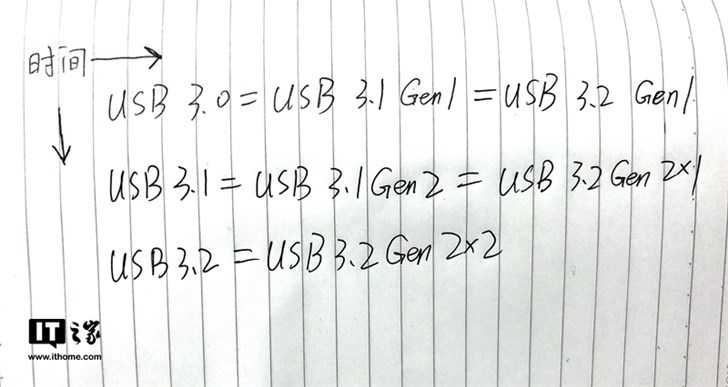 时间
USB 3.0 = USB 3.1 Gen1 = USB 3.2 Gen1
USB 3.1 = USB 3.1 Gen2 = USB 3.2 Gen 2×1
USB 3.2 = USB 3.2 Gen 2×2
IT之家
www.ithome.com